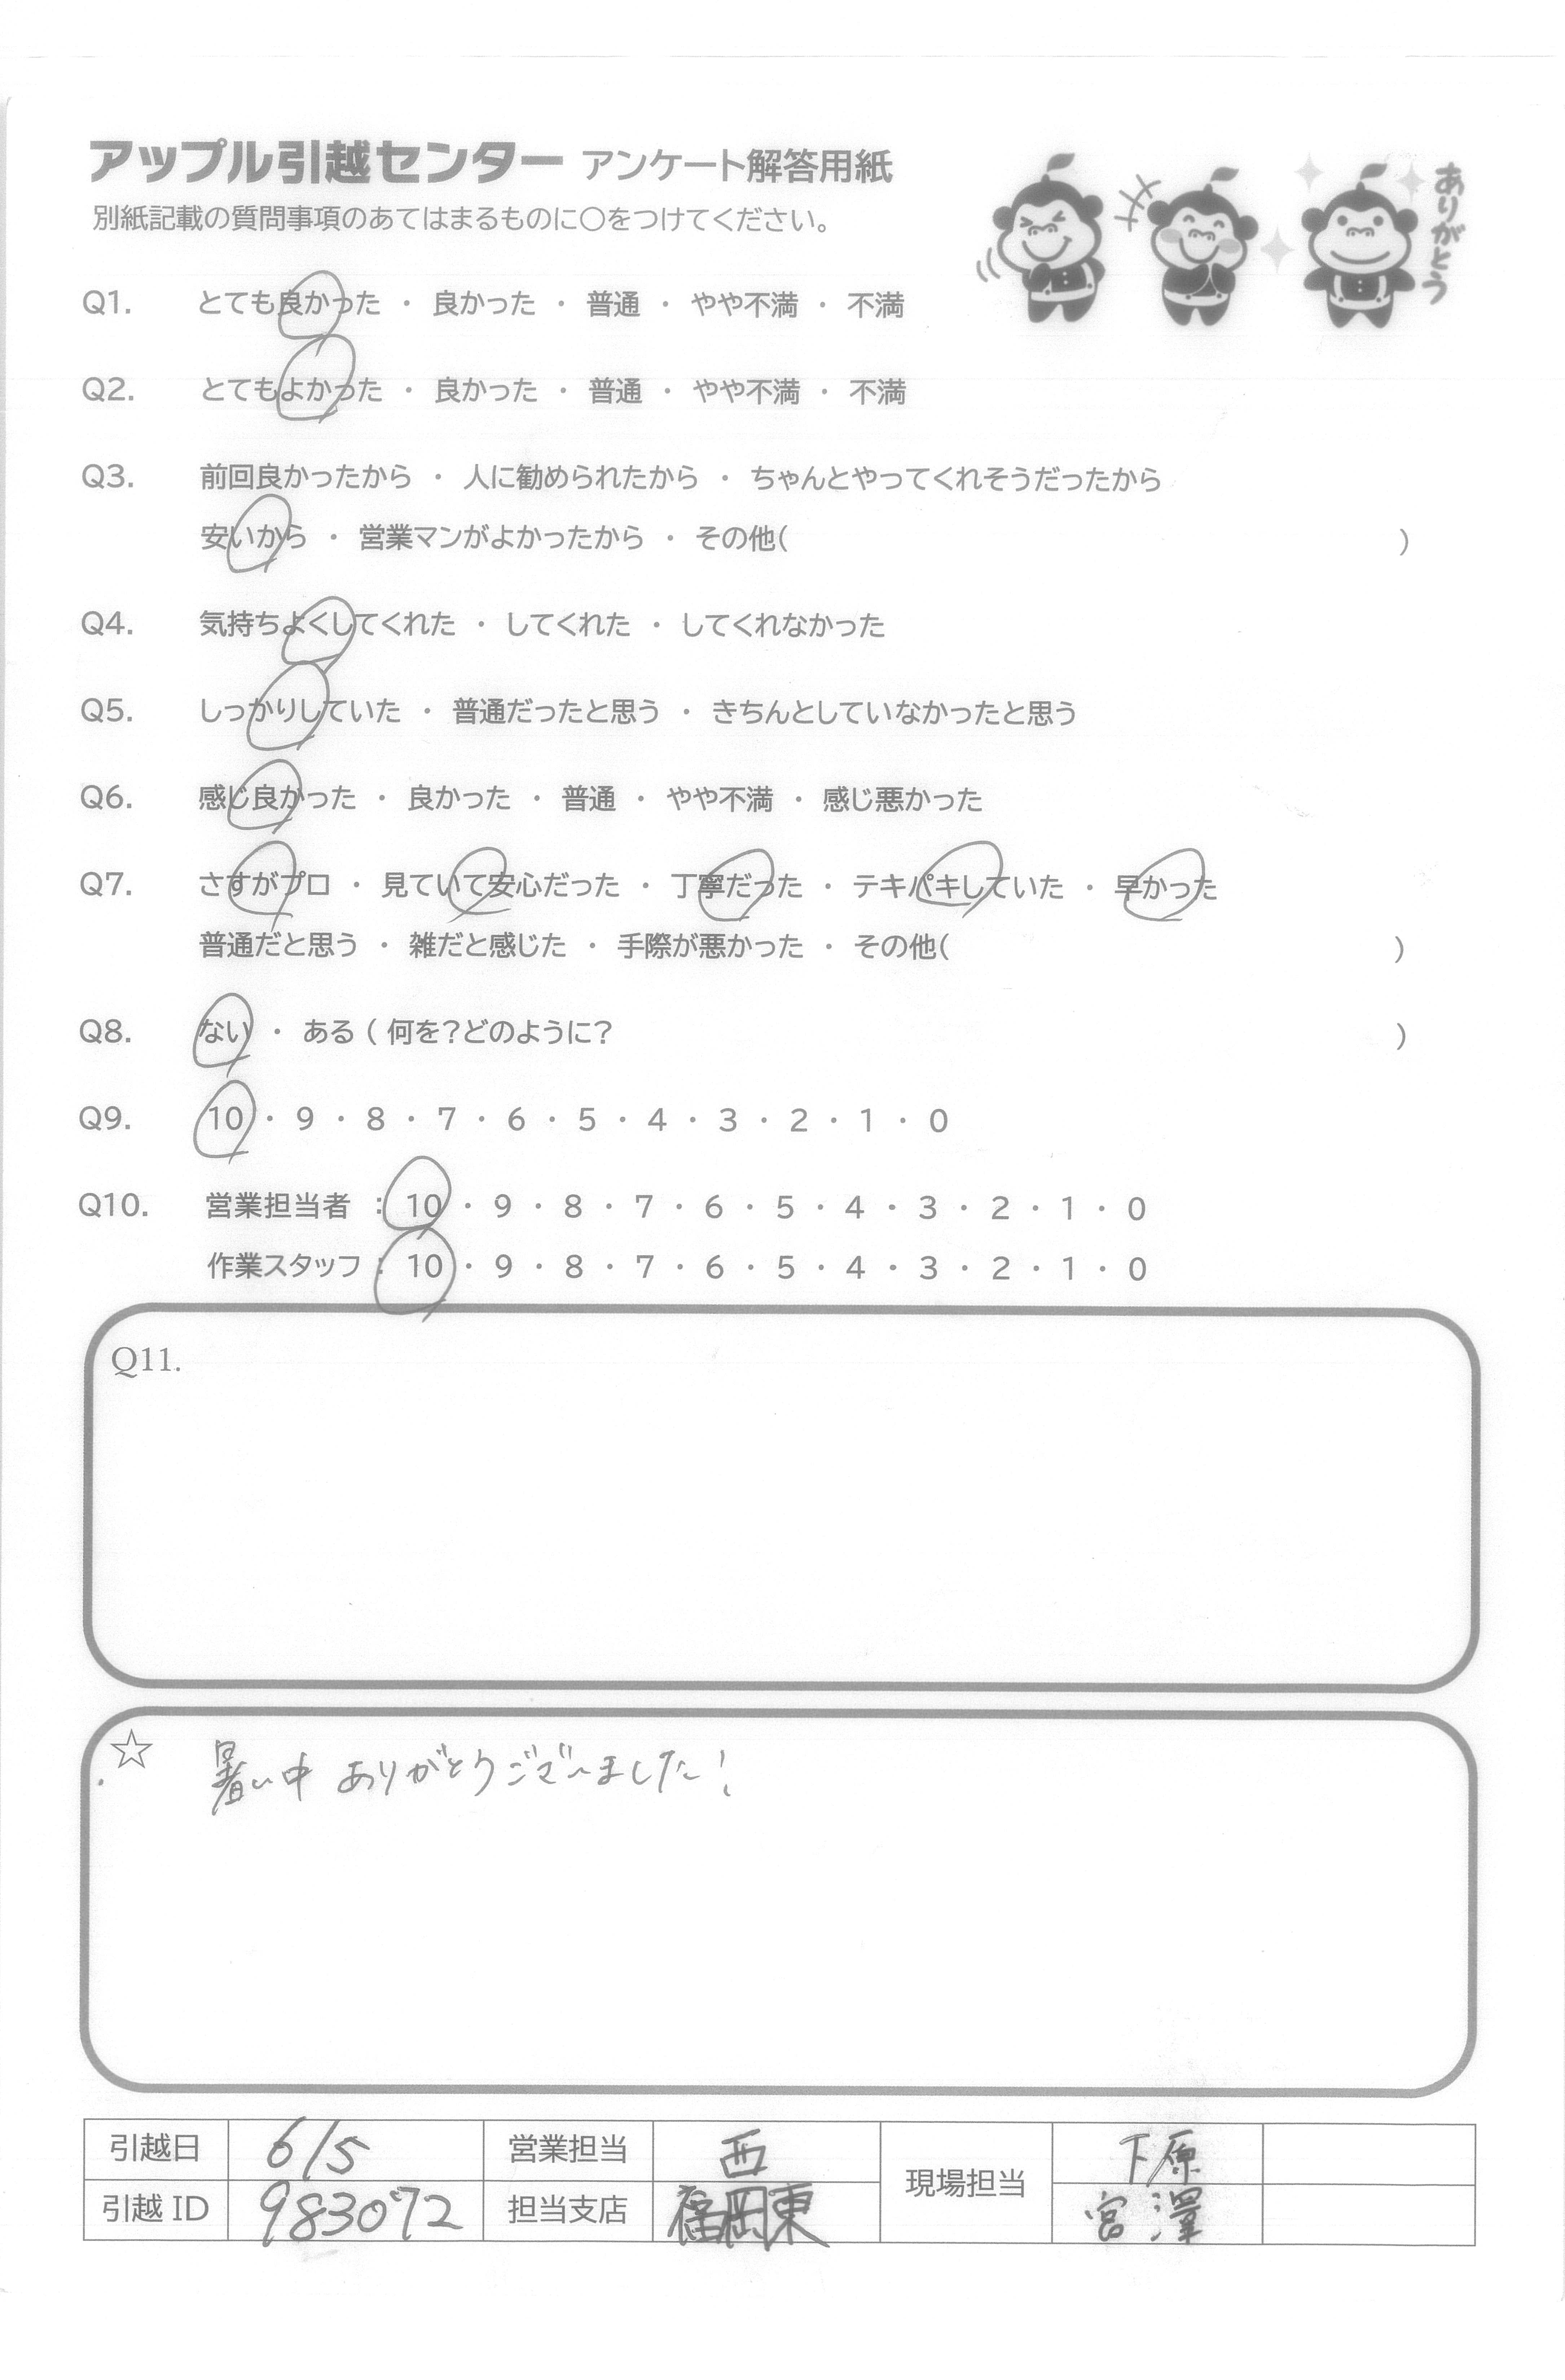 アップル引越センター アンケート解答用紙
別紙記載の質問事項のあてはまるものに〇をつけてください。
ありがとう
Q1. とても良かった ・ 良かった ・ 普通 ・ やや不満 ・ 不満
Q2. とてもよかった ・ 良かった ・ 普通 ・ やや不満 ・ 不満
Q3. 前回良かったから ・ 人に勧められたから ・ ちゃんとやってくれそうだったから
安いから ・ 営業マンがよかったから ・ その他( )
Q4. 気持ちよくしてくれた ・ してくれた ・ してくれなかった
Q5. しっかりしていた ・ 普通だったと思う ・ きちんとしていなかったと思う
Q6. 感じ良かった ・ 良かった ・ 普通 ・ やや不満 ・ 感じ悪かった
Q7. さすがプロ ・ 見ていて安心だった ・ 丁寧だった ・ テキパキしていた ・ 早かった
普通だと思う ・ 雑だと感じた ・ 手際が悪かった ・ その他( )
Q8. ない ・ ある ( 何を?どのように? )
Q9. 10 ・ 9 ・ 8 ・ 7 ・ 6 ・ 5 ・ 4 ・ 3 ・ 2 ・ 1 ・ 0
Q10. 営業担当者 : 10 ・ 9 ・ 8 ・ 7 ・ 6 ・ 5 ・ 4 ・ 3 ・ 2 ・ 1 ・ 0
作業スタッフ : 10 ・ 9 ・ 8 ・ 7 ・ 6 ・ 5 ・ 4 ・ 3 ・ 2 ・ 1 ・ 0
Q11.
☆ 暑い中 ありがとうございました!
引越日 6/5 営業担当 西 現場担当 下原
引越 ID 983072 担当支店 福岡東 宮澤